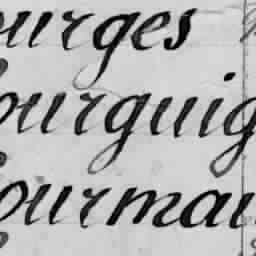 ourges
ourguig
ourmau